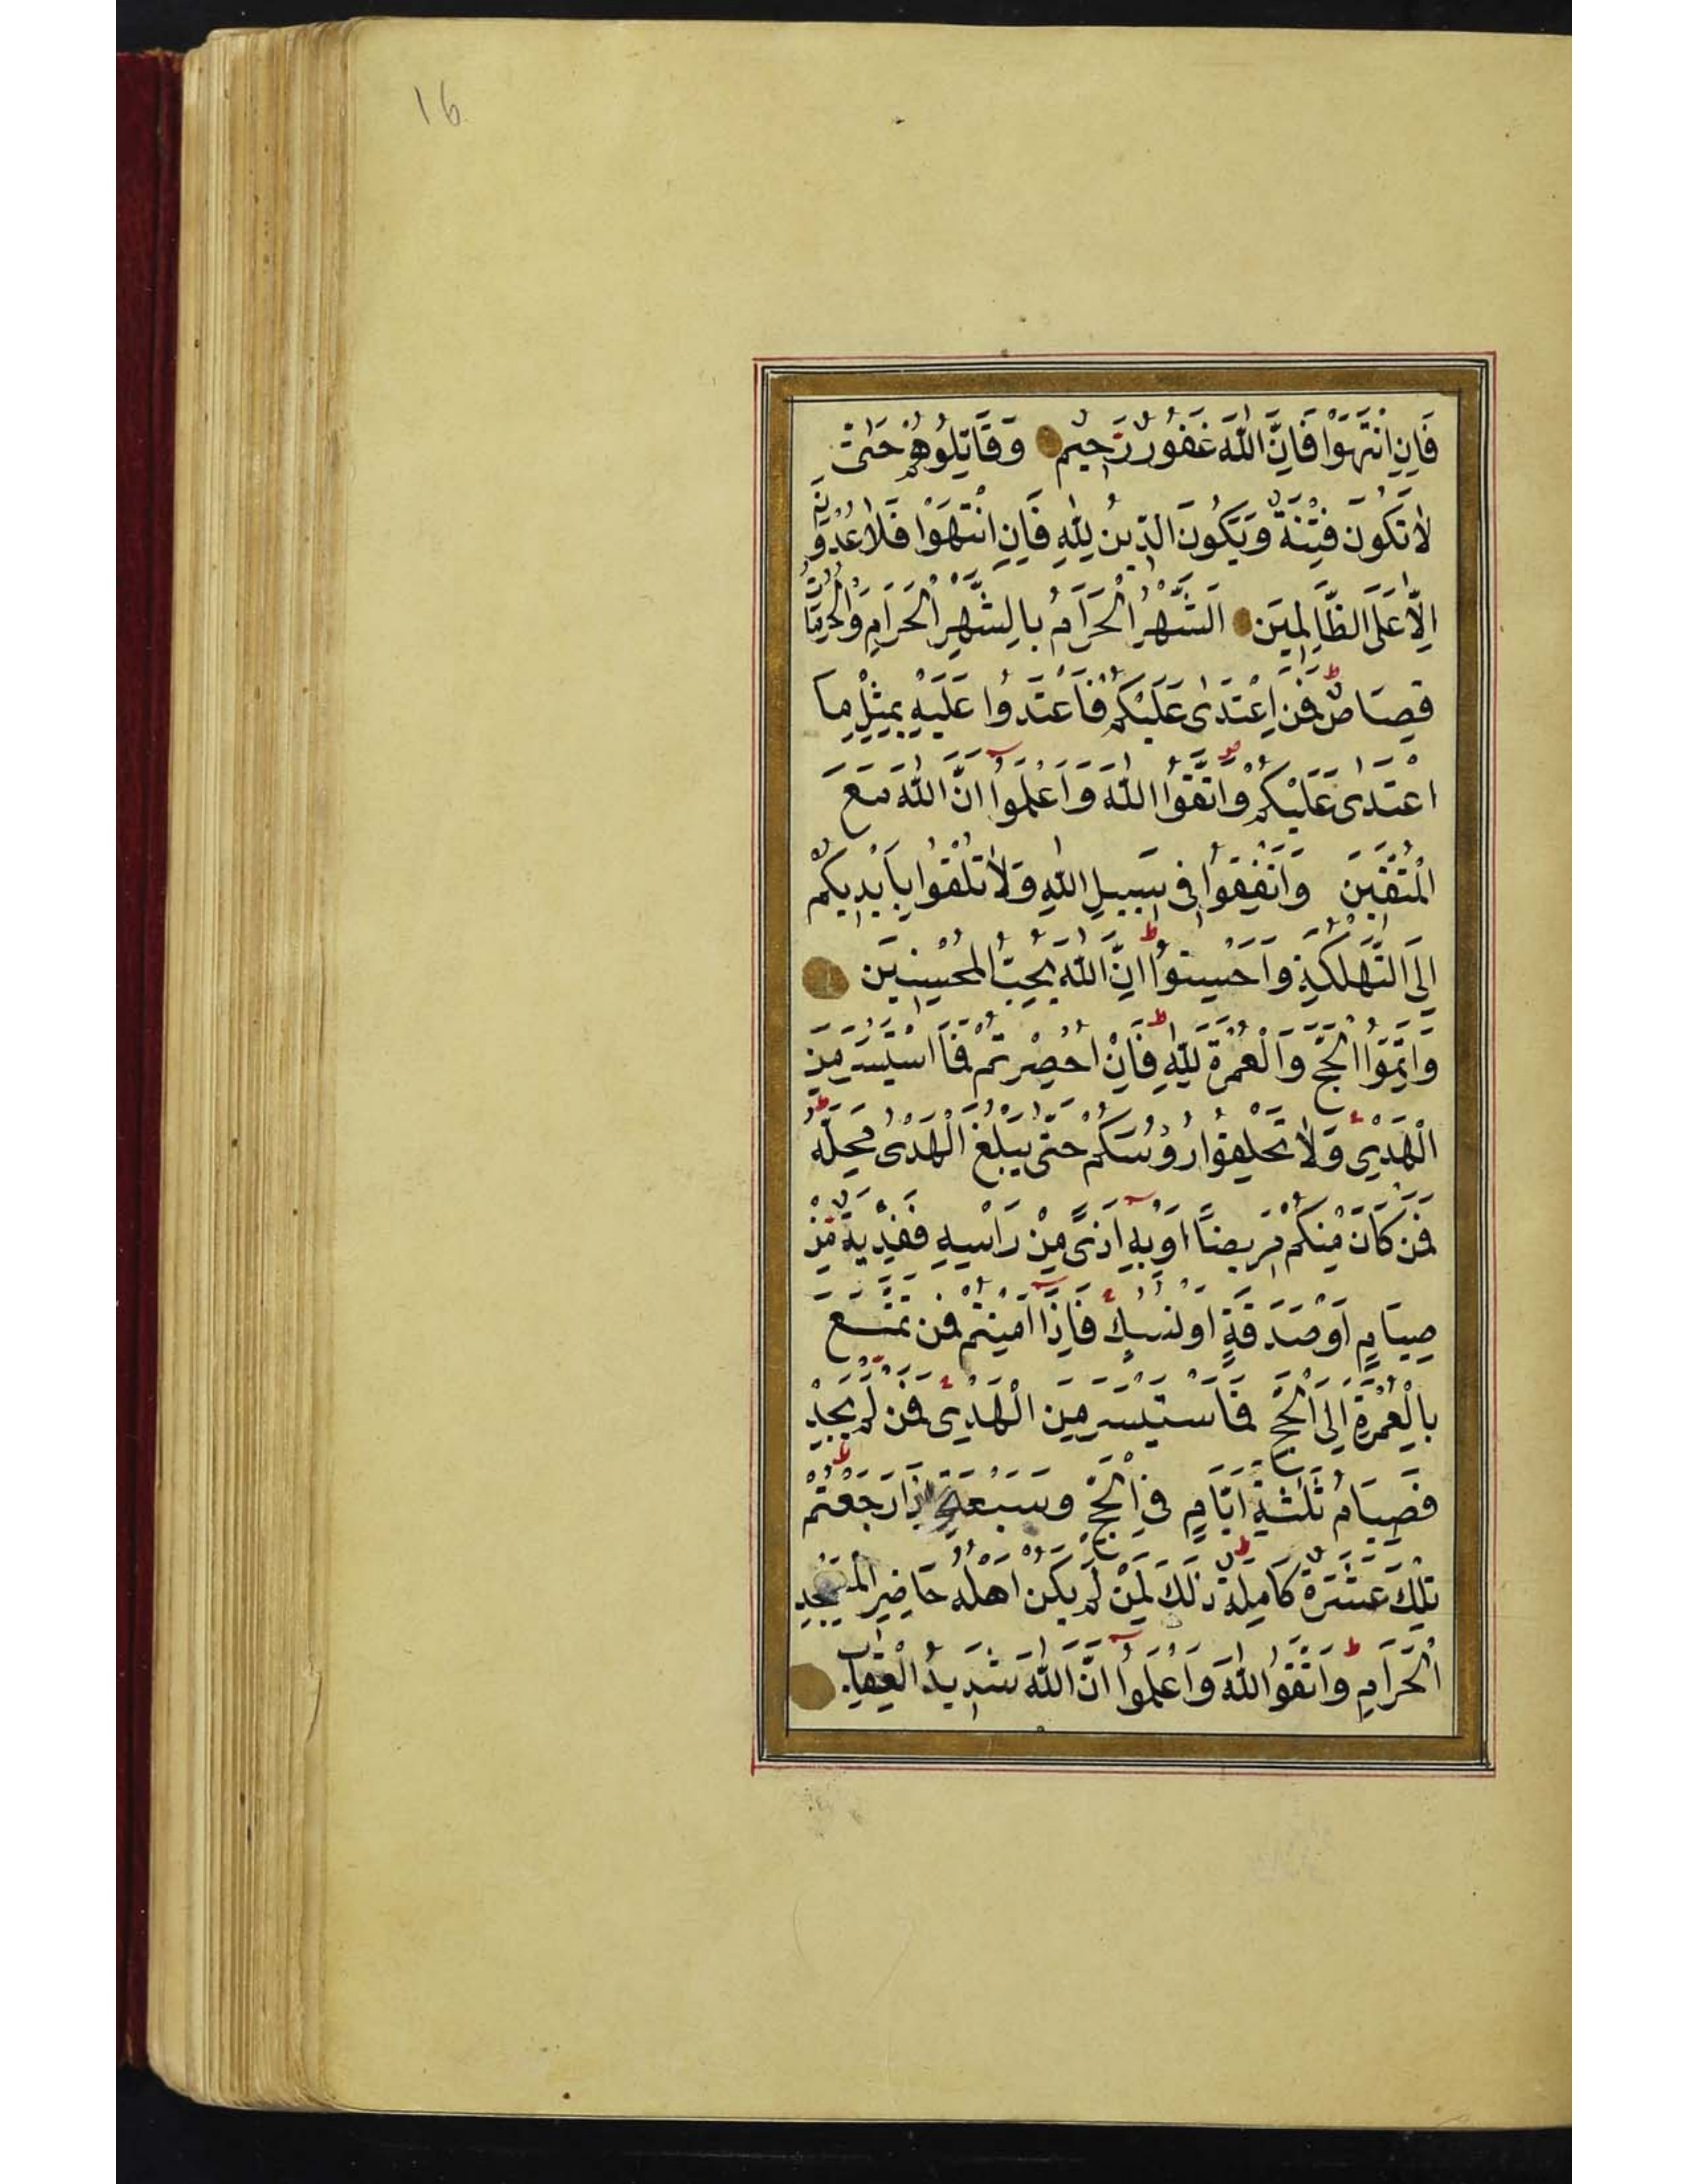 16
فَاِنِ انْتَهَوْا فَاِنَّ اللّٰهَ غَفُورٌ رَحِيمٌ وَقَاتِلُوهُمْ حَتّٰى
لَا تَكُونَ فِتْنَةٌ وَيَكُونَ الدِّينُ لِلّٰهِ فَاِنِ انْتَهَوْا فَلَا عُدْوَانَ
اِلَّا عَلَى الظَّالِمِينَ اَلشَّهْرُ الْحَرَامُ بِالشَّهْرِ الْحَرَامِ وَالْحُرُمَاتُ
قِصَاصٌ فَمَنِ اعْتَدٰى عَلَيْكُمْ فَاعْتَدُوا عَلَيْهِ بِمِثْلِ مَا
اعْتَدٰى عَلَيْكُمْ وَاتَّقُوا اللّٰهَ وَاعْلَمُوا اَنَّ اللّٰهَ مَعَ
الْمُتَّقِينَ وَاَنْفِقُوا فِى سَبِيلِ اللّٰهِ وَلَا تُلْقُوا بِاَيْدِيكُمْ
اِلَى التَّهْلُكَةِ وَاَحْسِنُوا اِنَّ اللّٰهَ يُحِبُّ الْمُحْسِنِينَ
وَاَتِمُّوا الْحَجَّ وَالْعُمْرَةَ لِلّٰهِ فَاِنْ اُحْصِرْتُمْ فَمَا اسْتَيْسَرَ مِنَ
الْهَدْىِ وَلَا تَحْلِقُوا رُؤُسَكُمْ حَتّٰى يَبْلُغَ الْهَدْىُ مَحِلَّهُ
فَمَنْ كَانَ مِنْكُمْ مَرِيضًا اَوْ بِهِ اَذًى مِنْ رَاْسِهِ فَفِدْيَةٌ مِنْ
صِيَامٍ اَوْ صَدَقَةٍ اَوْ نُسُكٍ فَاِذَا اَمِنْتُمْ فَمَنْ تَمَتَّعَ
بِالْعُمْرَةِ اِلَى الْحَجِّ فَمَا اسْتَيْسَرَ مِنَ الْهَدْىِ فَمَنْ لَمْ يَجِدْ
فَصِيَامُ ثَلٰثَةِ اَيَّامٍ فِى الْحَجِّ وَسَبْعَةٍ اِذَا رَجَعْتُمْ
تِلْكَ عَشَرَةٌ كَامِلَةٌ ذٰلِكَ لِمَنْ لَمْ يَكُنْ اَهْلُهُ حَاضِرِى الْمَسْجِدِ
الْحَرَامِ وَاتَّقُوا اللّٰهَ وَاعْلَمُوا اَنَّ اللّٰهَ شَدِيدُ الْعِقَابِ